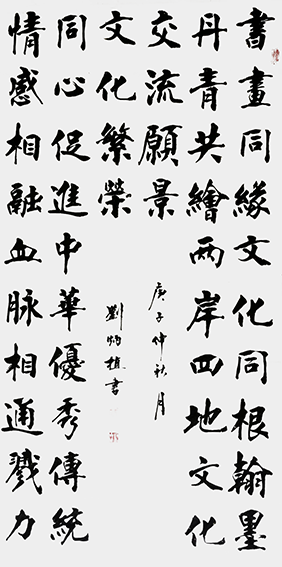 書畫同緣文化同根翰墨
丹青共繪兩岸四地文化
交流願景
庚子仲秋月
情感相融血脈相通戮力
同心促進中華優秀傳統
文化繁榮
劉炳書